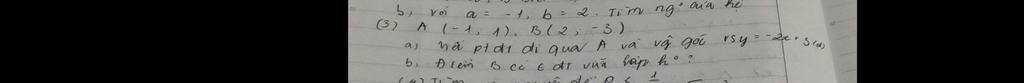 b, với a = -1, b = 2. Tìm ng° của hệ
(3) A (-1, 1), B(2, -3)
a) ptđt đi qua A và vg góc y = -2x + 3 (d)
b, Điểm B có ∈ đt vừa lập k°?
(4) Tìm